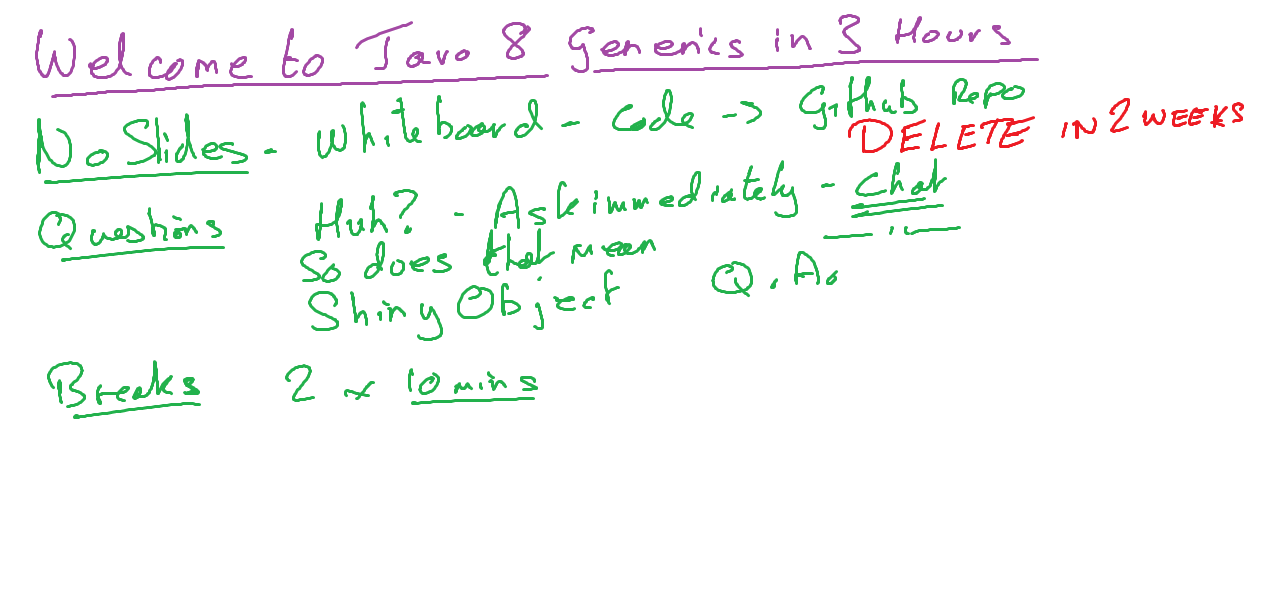 Welcome to Java 8 Generics in 3 Hours
No Slides - Whiteboard - Code -> Github Repo
DELETE IN 2 WEEKS
Questions Huh? - Ask immediately - Chat
So does that mean — " —
Shiny Object Q. A.
Breaks 2 x 10 mins